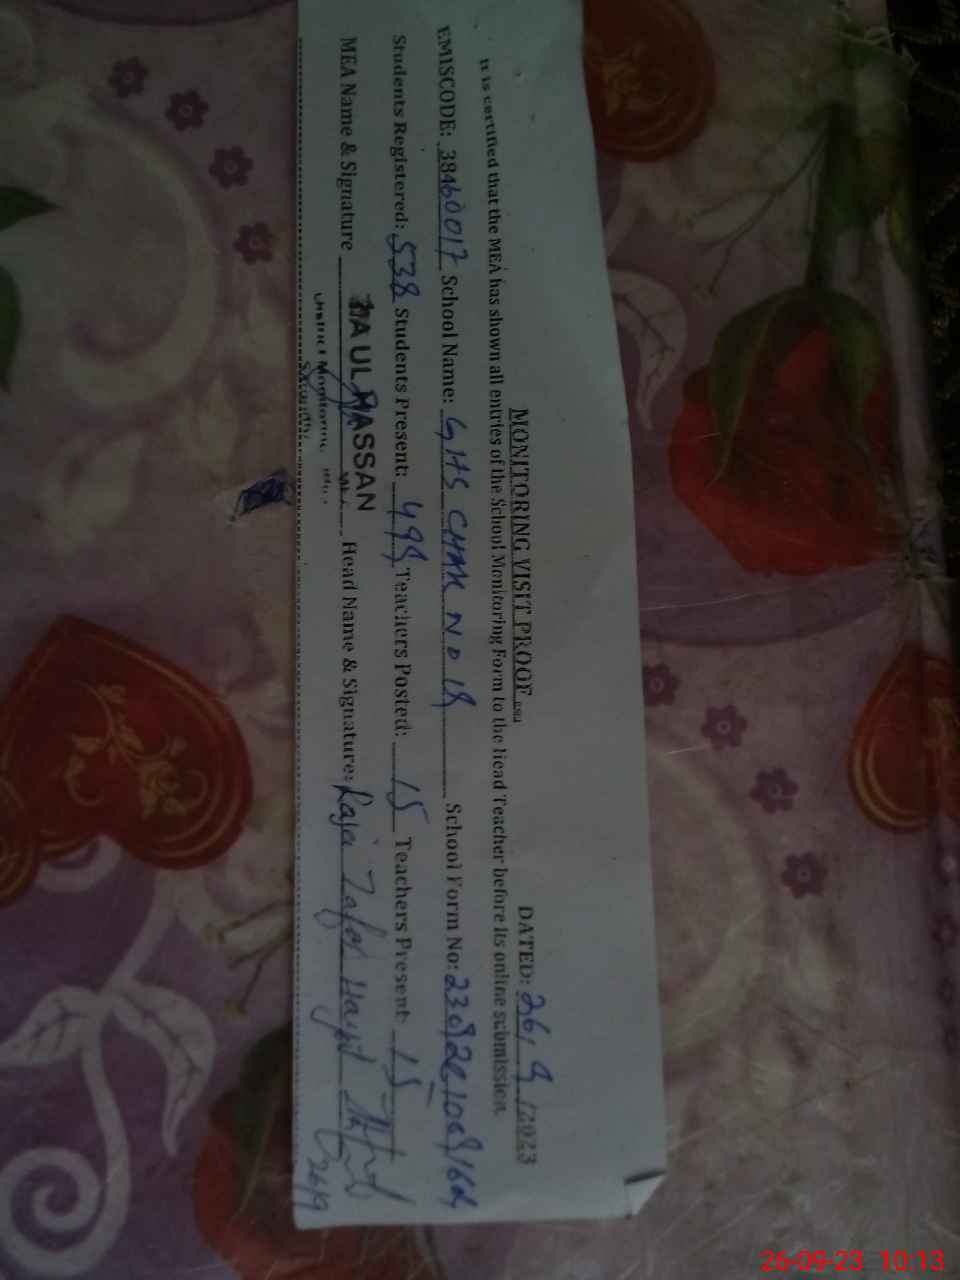 MONITORING VISIT PROOF DATED: 26/9/2023
It is certified that the MEA has shown all entries of the School Monitoring Form to the Head Teacher before its online submission.
EMISCODE: 38460017 School Name: GHS CHAK NO 18 School Form No:
Students Registered: 538 Students Present: 499 Teachers Posted: 15 Teachers Present: 15
MEA Name & Signature UL HASSAN Head Name & Signature: Raja Zafar Hayat
District Monitoring
26/9
26-09-23 10:13